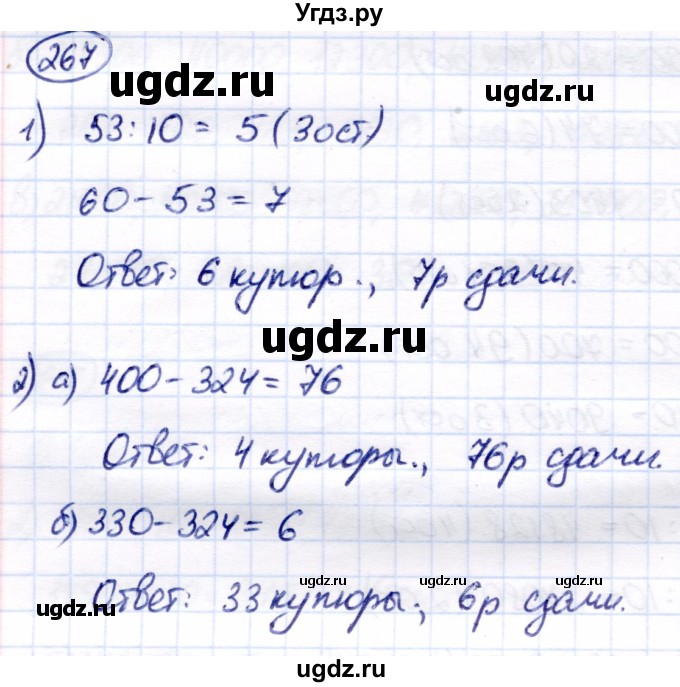 Угдз.ру
267
ugdz.ru
1) 53:10 = 5 (3ост)
60 - 53 = 7
Ответ: 6 купюр., 7р сдачи.
ugdz.ru
2) а) 400 - 324 = 76
Ответ: 4 купюры., 76р сдачи.
ugdz.ru
б) 330 - 324 = 6
ugdz.ru ugdz.ru ugdz.ru
ugdz.ru
Ответ: 33 купюры; 6р сдачи.
ugdz.ru